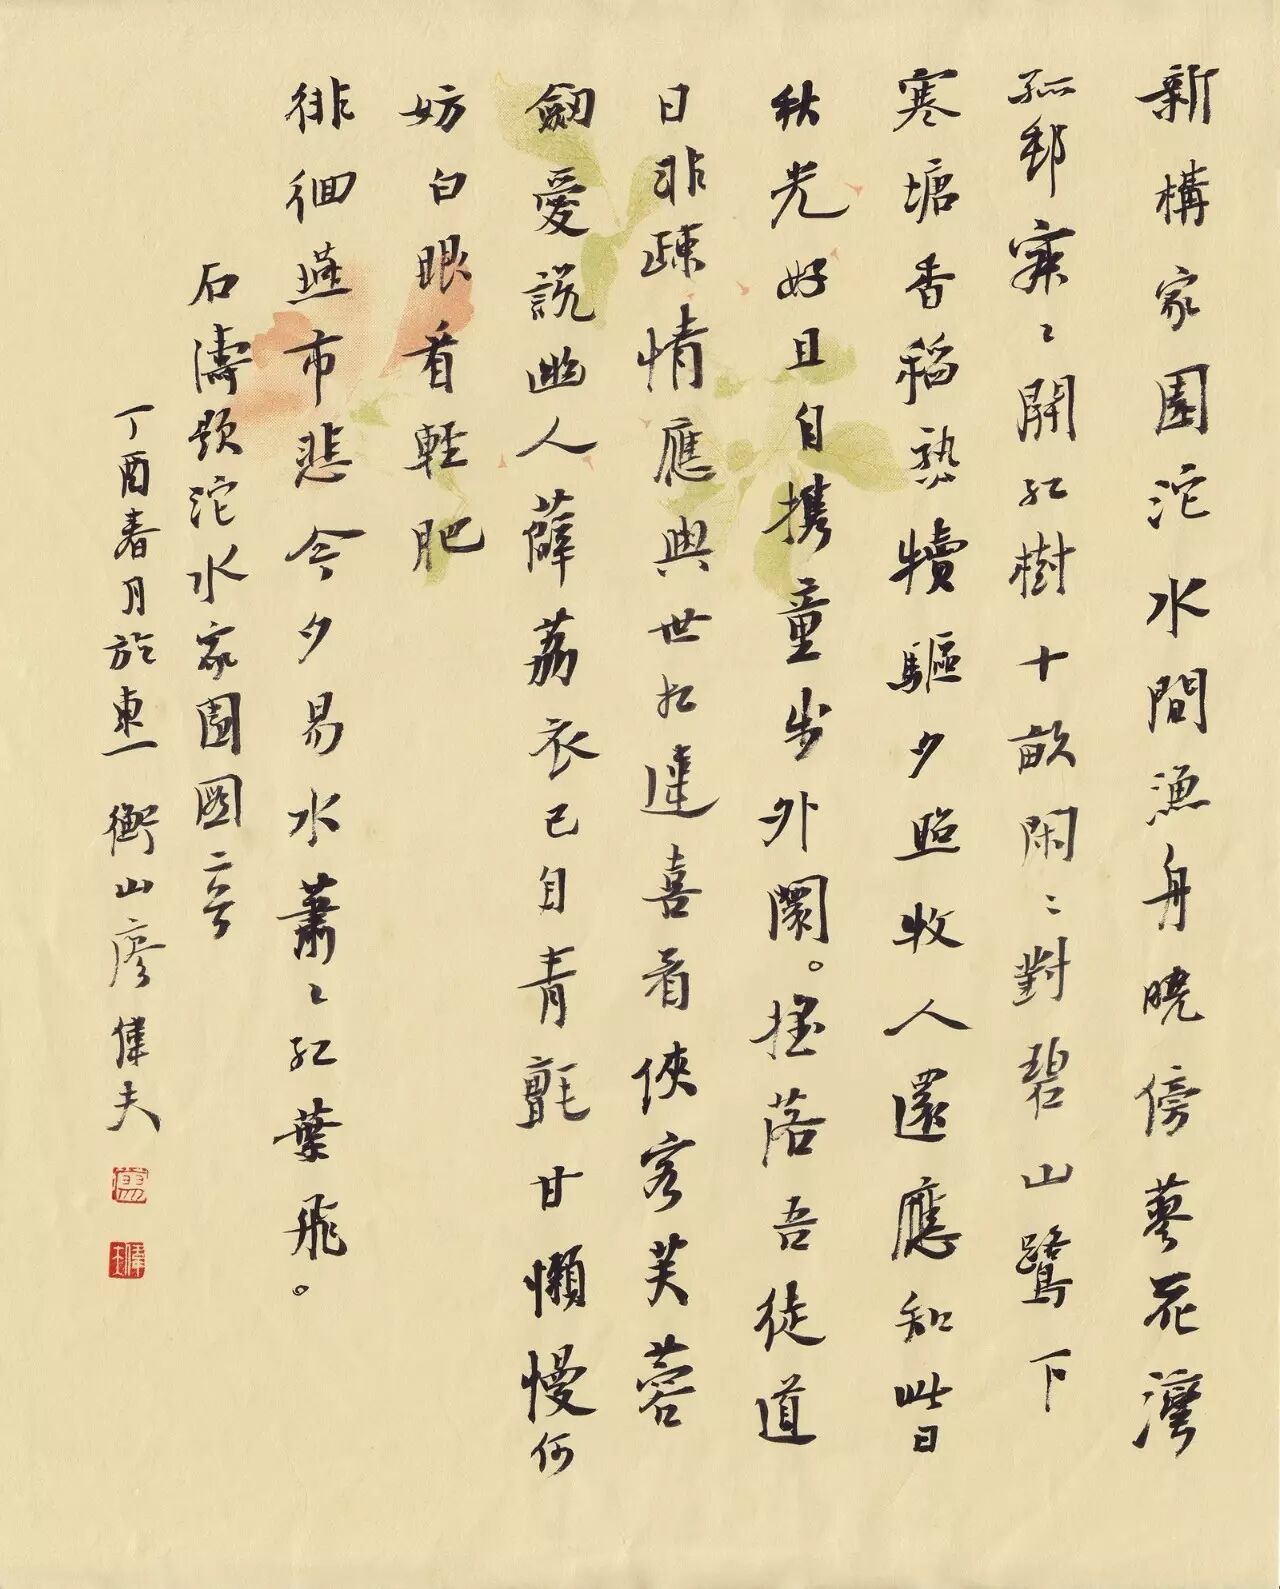 新構家園沱水間漁舟曉傍蓼花灣
孤邨寂〻開紅樹十畝閑〻對碧山鷺下
寒塘香稻熟犢驅夕照牧人還應知此日
秋光好且自攜童步外闤。搖落吾徒道
日非疎情應與世相違喜看俠客芙蓉
劒愛說幽人薜荔衣已自青氈甘懶慢何
妨白眼看輕肥
徘徊燕市悲今夕易水蕭〻紅葉飛。
石濤題沱水家園圖二章
丁酉春月於東一衡山廖偉夫